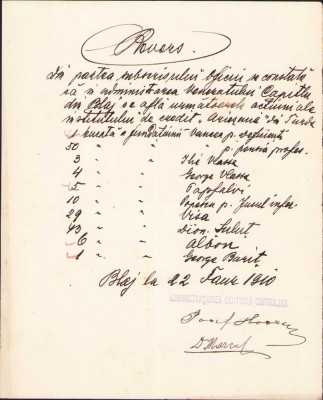 Revers.
Din partea subscrisului oficiu se constată
că în administrarea Veneratului Capitlu
din Blaj se află următoarele acțiuni ale
institutului de credit „Arieșana" din Turda
1 bucată a fundațiunii Vancea p. deficienți
50 " " " p. pensii profes.
3 " " Ilie Vlassa
4 " " George Vlassa
5 " " Papfalvi
10 " " Popescu p.
29 " " Vișa
43 " " Dion. Șuluț
6 " " Albon
1 " " George Bariț
Blaj la 22 Faur 1910
ADMINISTRAȚIUNEA CENTRALĂ CAPITULARĂ
Iosif